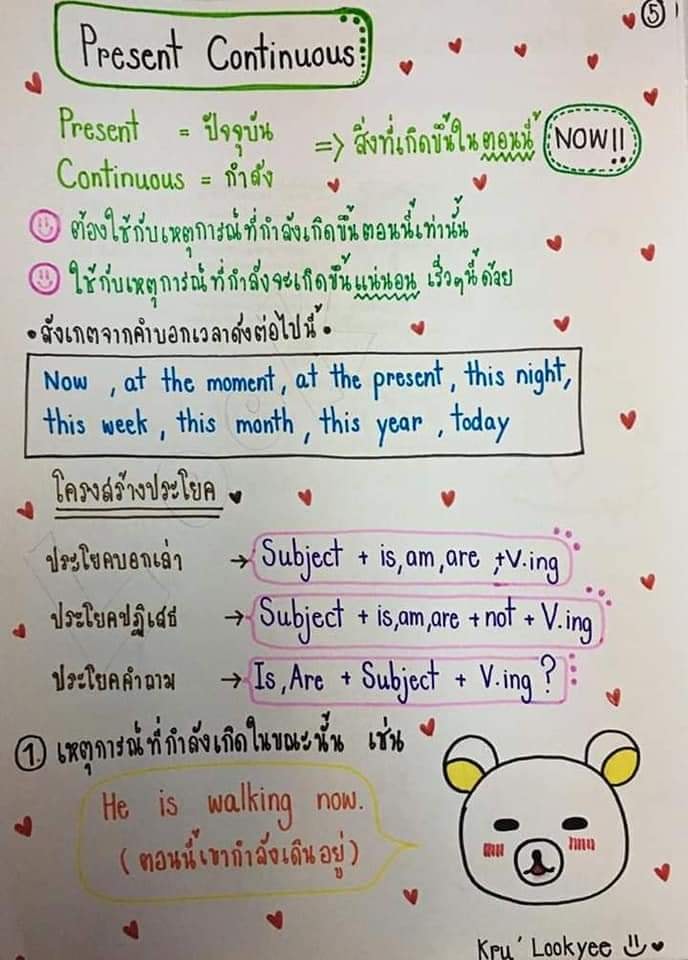 5
Present Continuous
Present = ปัจจุบัน => สิ่งที่เกิดขึ้นในตอนนี้ NOW!!
Continuous = กำลัง
ต้องใช้กับเหตุการณ์ที่กำลังเกิดขึ้นตอนนี้เท่านั้น
ใช้กับเหตุการณ์ที่กำลังจะเกิดขึ้นแน่นอน เร็วๆนี้ด้วย
•สังเกตจากคำบอกเวลาดังต่อไปนี้•
Now , at the moment, at the present, this night,
this week, this month, this year, today
โครงสร้างประโยค
ประโยคบอกเล่า → Subject + is,am,are +V.ing
ประโยคปฏิเสธ → Subject + is,am,are +not + V.ing
ประโยคคำถาม → Is,Are + Subject + V.ing ?
1. เหตุการณ์ที่กำลังเกิดในขณะนั้น เช่น
He is walking now.
(ตอนนี้เขากำลังเดินอยู่)
Kru' Lookyee